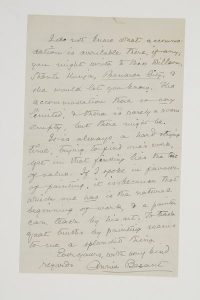 I do not know what accommo-
dation is available there, if any,
you might write to Miss Willson,
Shanti Kunja, Benares City, &
she would let you know. The
accommodation there is very
limited, & there is rarely a room
empty, but there might be.
It is always a hard
time, trying to find one's work,
yet in that finding lies the
of value. If I spoke in favour
of painting, it is because that
which one has is the natural
beginning of work, & a painter
can teach by his art. To teach
great truths by painting seems
to me a splendid thing.
Ever yours, with very kind
regards Annie Besant